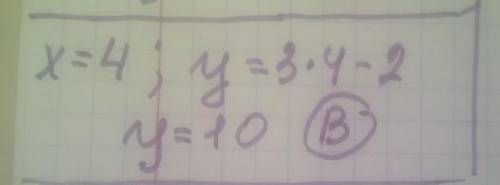 x=4; y=3·4-2
y=10 B